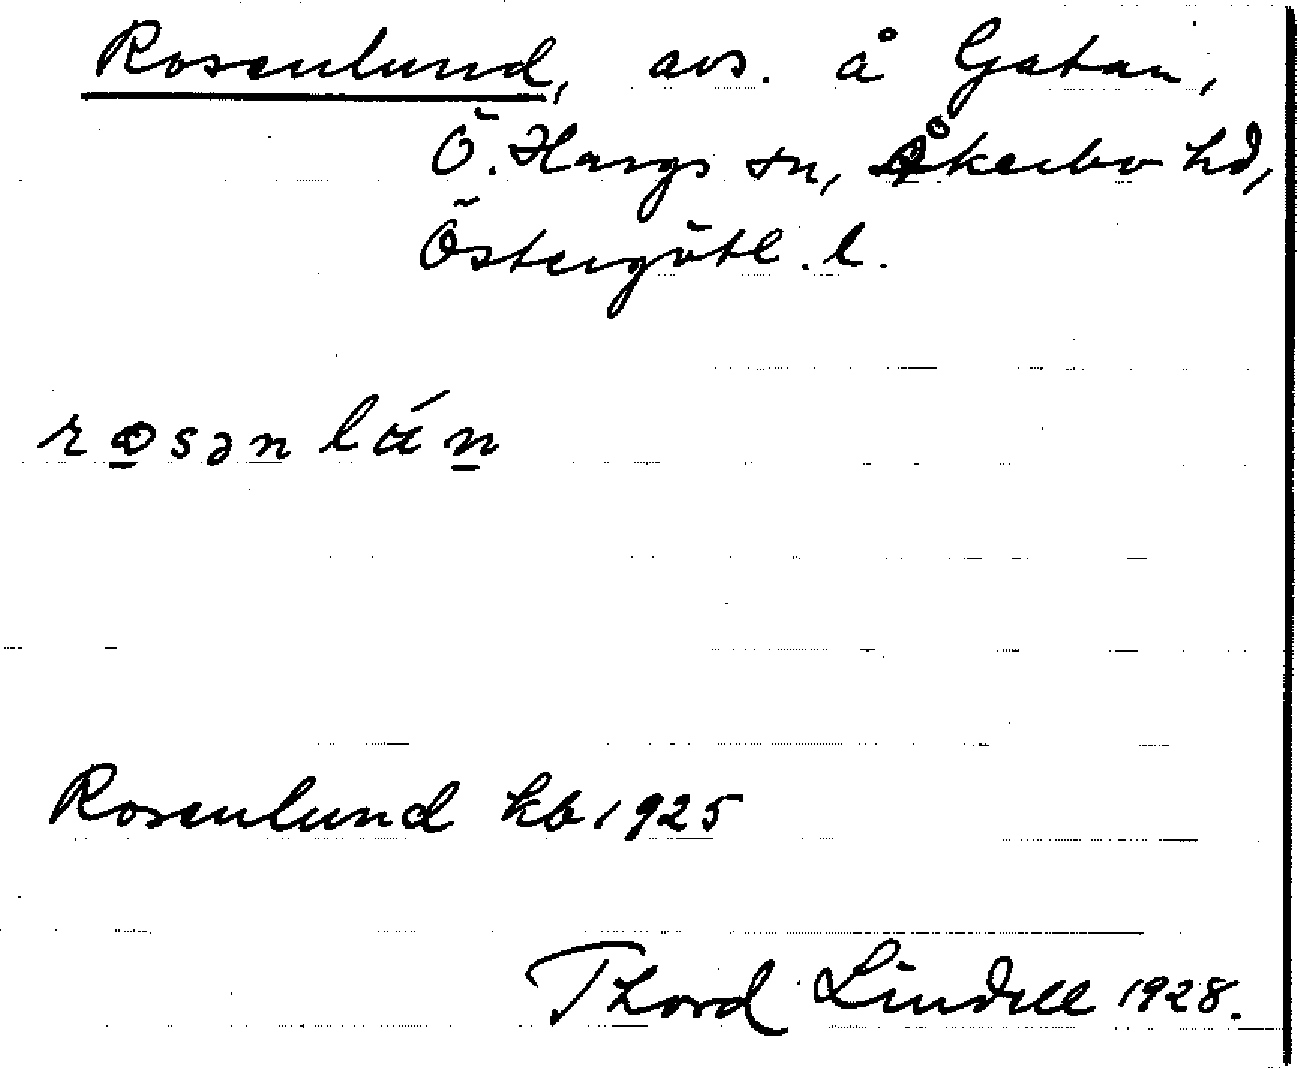 Rosenlund, avs. å Gatan,
Ö. Hargs sn, Åkerbo hd,
Östergötl. l.
Rosenlund kb 1925
Thord Lindell 1928.